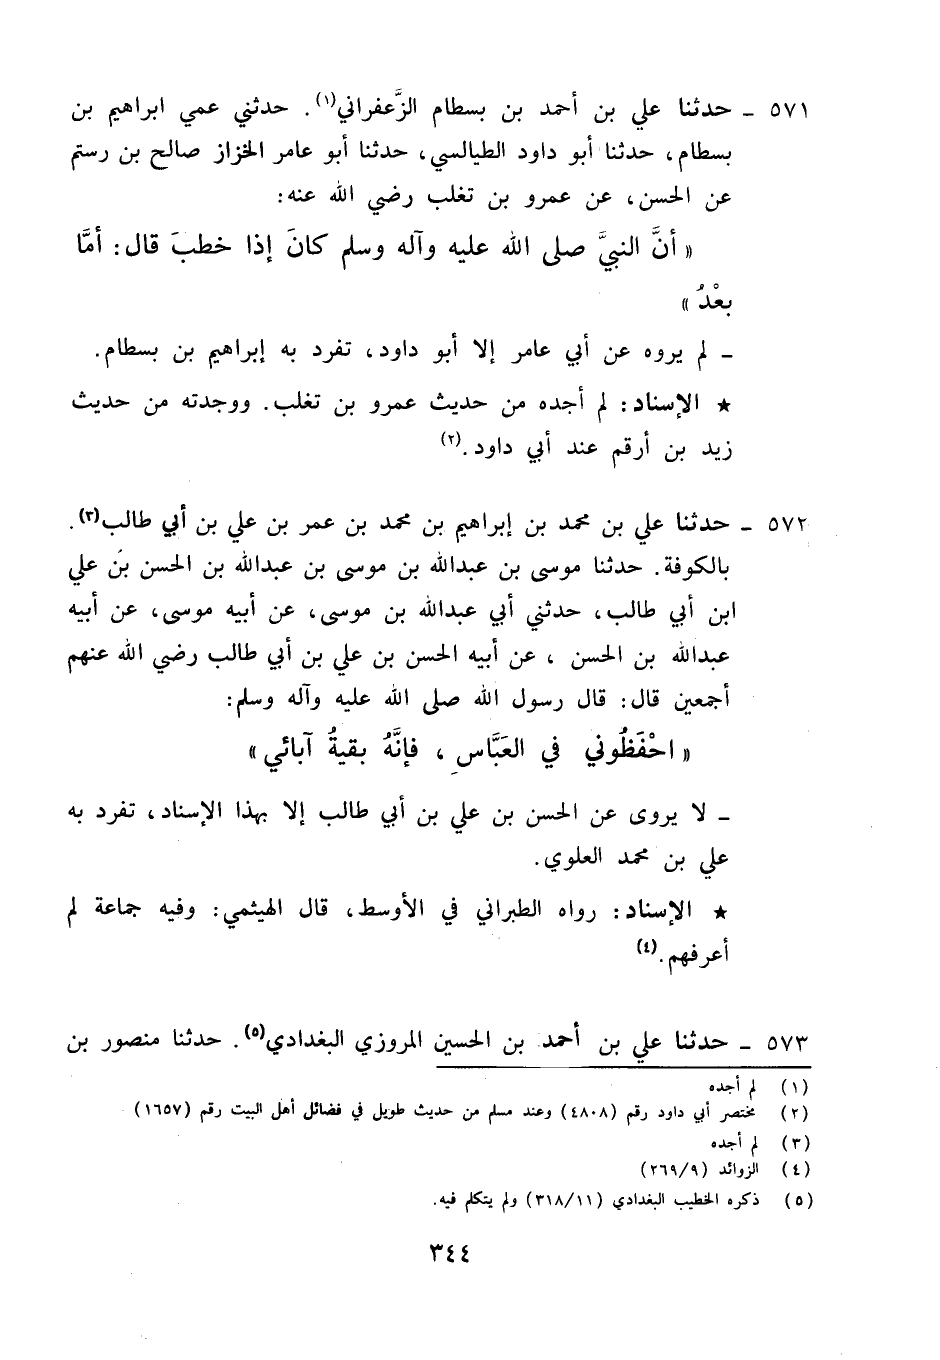 ٥٧١ ـ حدثنا علي بن أحمد بن بسطام الزَّعفراني(١). حدثني عمي ابراهيم بن
بسطام، حدثنا أبو داود الطيالسي، حدثنا أبو عامر الخزاز صالح بن رستم
عن الحسن، عن عمرو بن تغلب رضي الله عنه:
« أنَّ النبيَّ صلى الله عليه وآله وسلم كانَ إذا خطبَ قال: أمَّا
بعْدُ »
ـ لم يروه عن أبي عامر إلا أبو داود، تفرد به إبراهيم بن بسطام.
★ الإسناد: لم أجده من حديث عمرو بن تغلب. ووجدته من حديث
زيد بن أرقم عند أبي داود.(٢)
٥٧٢ ـ حدثنا علي بن محمد بن إبراهيم بن محمد بن عمر بن علي بن أبي طالب(٣).
بالكوفة. حدثنا موسى بن عبدالله بن موسى بن عبدالله بن الحسن بن علي
ابن أبي طالب، حدثني أبي عبدالله بن موسى، عن أبيه موسى، عن أبيه
عبدالله بن الحسن ، عن أبيه الحسن بن علي بن أبي طالب رضي الله عنهم
أجمعين قال: قال رسول الله صلى الله عليه وآله وسلم:
« احْفَظُوني في العَبَّاس ، فإنَّهُ بقيةُ آبائي »
ـ لا يروى عن الحسن بن علي بن أبي طالب إلا بهذا الإسناد، تفرد به
علي بن محمد العلوي.
★ الإسناد: رواه الطبراني في الأوسط، قال الهيثمي: وفيه جماعة لم
أعرفهم.(٤)
٥٧٣ ـ حدثنا علي بن أحمد بن الحسين المروزي البغدادي(٥). حدثنا منصور بن
(١) لم أجده
(٢) مختصر أبي داود رقم (٤٨٠٨) وعند مسلم من حديث طويل في فضائل أهل البيت رقم (١٦٥٧)
(٣) لم أجده
(٤) الزوائد (٢٦٩/٩)
(٥) ذكره الخطيب البغدادي (٣١٨/١١) ولم يتكلم فيه.
٣٤٤